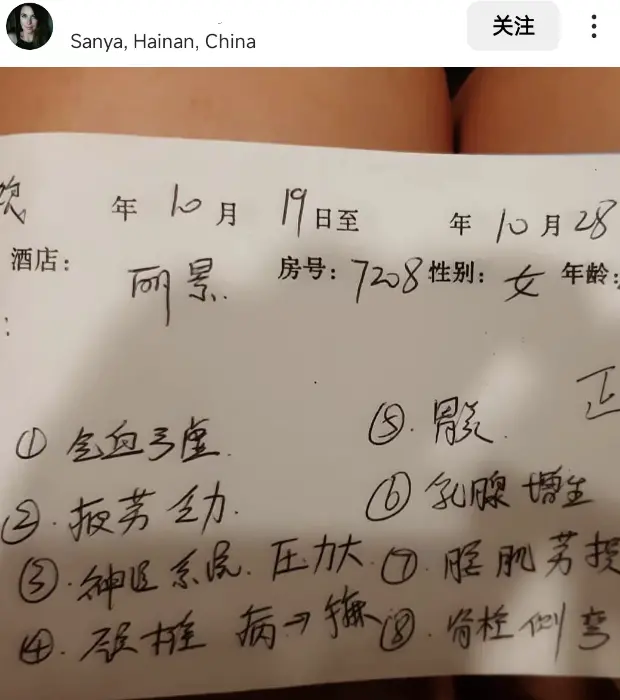 关注
Sanya, Hainan, China
年 10 月 19 日至 年 10 月 28
酒店: 丽景. 房号: 7208 性别: 女 年龄:
:
正
① 气血亏虚.
⑤. 胃炎.
②. 疲劳乏力.
⑥ 乳腺增生
③. 神经系统. 压力大.
⑦. 腰肌劳损
④. 颈椎病→
⑧. 脊柱侧弯